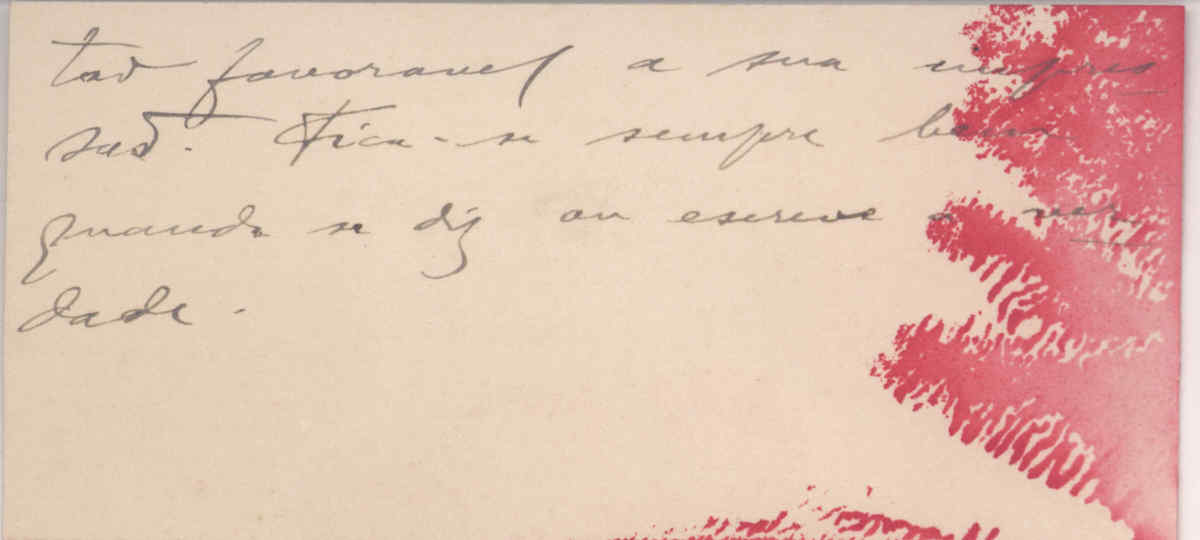 tão favoravel a sua impres
são. Fica-se sempre bem
quando se diz ou escreve a ver
dade.